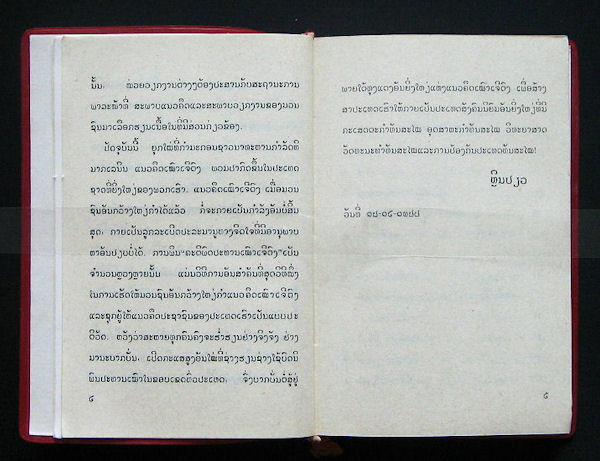 ນັ້ນ, ໜ່ວຍວຽກງານຕ່າງໆຕ້ອງປະສານກັບສະຖານະການ
ພາວະໜ້າທີ່ ສະພາບແນວຄິດແລະສະພາບວຽກງານຂອງມວນ
ຊົນມາເລືອກຮຽນເນື້ອໃນທີ່ມີສ່ວນກ່ຽວຂ້ອງ.
ປັດຈຸບັນນີ້ ຍຸກໃໝ່ທີ່ກຳມະກອນຊາວນາທະຫານກຳລັດທິ
ມາກເລນິນ ແນວຄິດເໝົາເຈີຕົງ ພວມປາກົດຂຶ້ນໃນປະເທດ
ຊາດທີ່ຍິ່ງໃຫຍ່ຂອງພວກເຮົາ. ແນວຄິດເໝົາເຈີຕົງ ເມື່ອມວນ
ຊົນອັນກວ້າງໃຫຍ່ກຳໄດ້ແລ້ວ ກໍ່ຈະກາຍເປັນກຳລັງອັນບໍ່ສິ້ນ
ສຸດ, ກາຍເປັນລູກລະເບີດປະລະມານູທາງຈິດໃຈທີ່ມີອານຸພາບ
ຫາອັນປຽບບໍ່ໄດ້. ການພິມ“ຄະຕິພົດປະທານເໝົາເຈີຕົງ”ເປັນ
ຈຳນວນຫຼວງຫຼາຍນັ້ນ ແມ່ນວິທີການອັນສຳຄັນທີ່ສຸດວິທີໜຶ່ງ
ໃນການເຮັດໃຫ້ມວນຊົນອັນກວ້າງໃຫຍ່ກຳແນວຄິດເໝົາເຈີຕົງ
ແລະຊຸກຍູ້ໃຫ້ແນວຄິດປະຊາຊົນຂອງປະເທດເຮົາເປັນແບບປະ
ຕິວັດ. ຫວັງວ່າສະຫາຍທຸກຄົນຄົງຈະຮ່ຳຮຽນຢ່າງຈິງຈັງ ຢ່າງ
ມານະບາກບັ່ນ, ເປີດກະແສສູງອັນໃໝ່ທີ່ຊ່າງຮຽນຊ່າງໃຊ້ບົດນິ
ພົນປະທານເໝົາໃນຂອບເຂດທົ່ວປະເທດ, ຈົ່ງບາກບັ່ນຕໍ່ສູ້ຢູ່
໒
ພາຍໃຕ້ທຸງແດງອັນຍິ່ງໃຫຍ່ແຫ່ງແນວຄິດເໝົາເຈີຕົງ ເພື່ອສ້າງ
ສາປະເທດເຮົາໃຫ້ກາຍເປັນປະເທດສັງຄົມນິຍົມອັນຍິ່ງໃຫຍ່ທີ່ມີ
ກະເສດຕະກຳທັນສະໄໝ ອຸດສາຫະກຳທັນສະໄໝ ວິທະຍາສາດ
ວັດທະນະທຳທັນສະໄໝແລະການປ້ອງກັນປະເທດທັນສະໄໝ!
ຫຼິນປຽວ
ວັນທີ